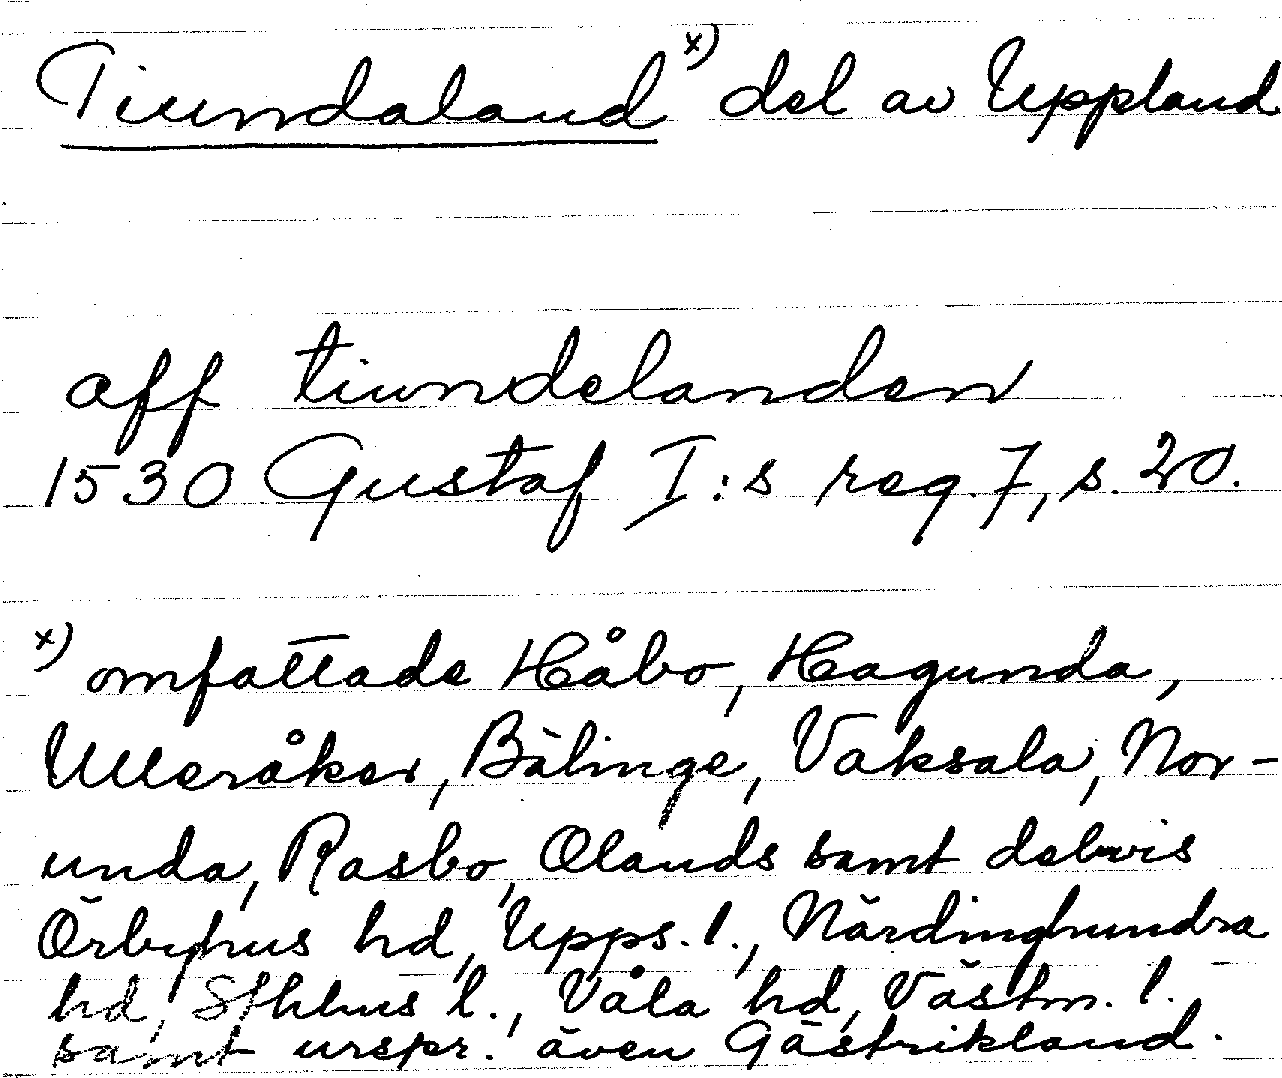 Tiundaland x) del av Uppland
aff tiundelanden
1530 Gustaf I:s reg. 7, s. 20.
x) omfattade Håbo, Hagunda,
Ulleråker, Bälinge, Vaksala, Nor-
unda, Rasbo, Olands samt delvis
Örbyhus hd, Upps. l., Närdinghundra
hd, Sthlms l., Våla hd, Västm. l.
samt urspr. även Gästrikland.